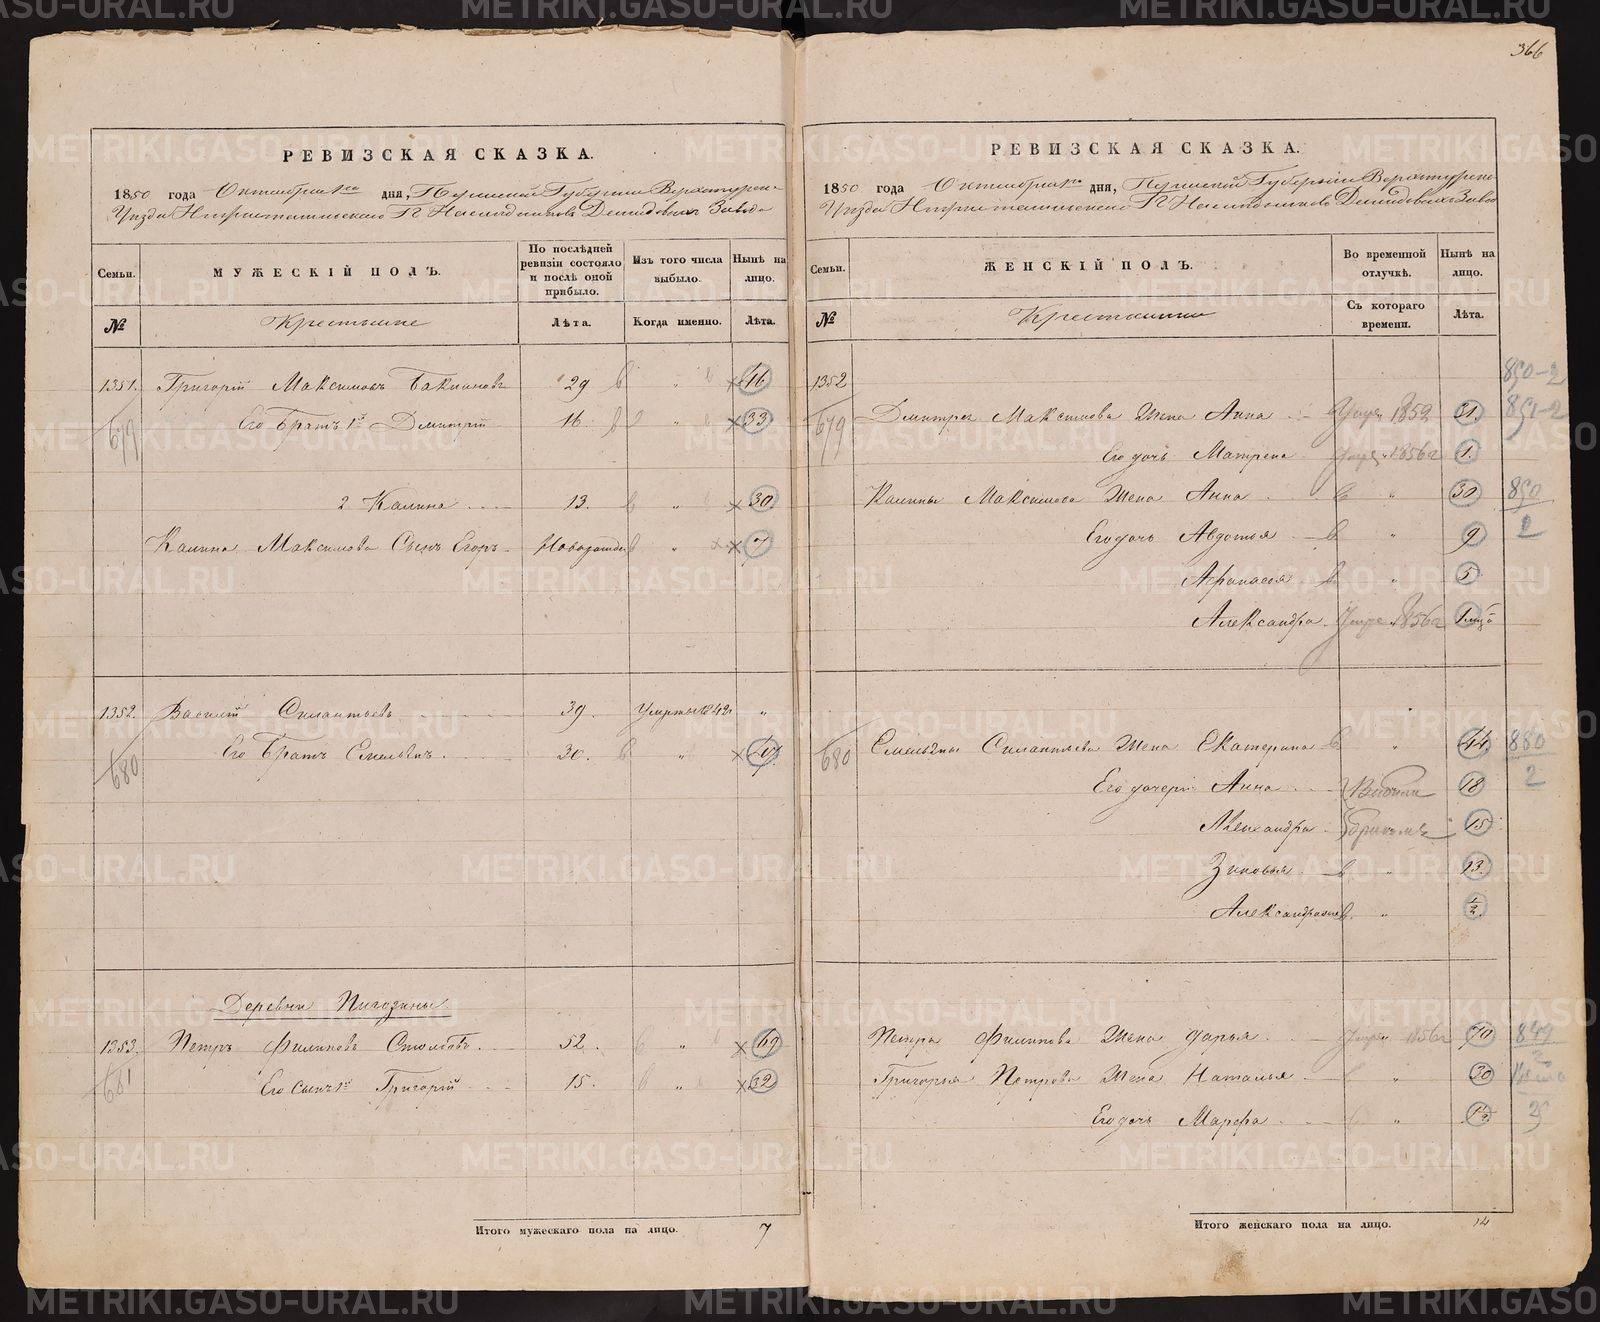 366
РЕВИЗСКАЯ СКАЗКА.
1850 года Октября 1го дня, Пермской Губернии Верхотурск.
Уезда Нижнетагильского Г. Наследников Демидовых Завода
Семьи.
МУЖЕСКІЙ ПОЛЪ.
По послѣдней ревизіи состояло и послѣ оной прибыло.
Изъ того числа выбыло.
Нынѣ на лицо.
№
Крестьяне
Лѣта.
Когда именно.
Лѣта.
1351. Григорій Максимовъ 29 " 46
679 Его Братъ 1й Дмитрій 16. " 33
2 Калина 13. " 30
Калина Максимова Сынъ Егоръ Новорожд " 7
1352. Василій Силантьевъ 39. Умеръ 1842 "
680 Его Братъ Емельянъ 30. " 47
Деревни
1353. Петръ Филиповъ Столбовъ 52. " 69
681 Его сынъ 1й Григорій 15. " 32
Итого мужескаго пола на лицо. 7
РЕВИЗСКАЯ СКАЗКА.
1850 года Октября 1го дня, Пермской Губерніи Верхотурск
Уезда Нижнетагильского Г. Наследников Демидовых Заво
Семьи.
ЖЕНСКІЙ ПОЛЪ.
Во временной отлучкѣ.
Нынѣ на лицо.
№
Крестьянки
Съ котораго времени.
Лѣта.
1352 850-2
679 Дмитрея Максимова Жена Анна 1852 31. 851-2
Его дочь Матрена 1856 1.
Калины Максимова Жена Анна " 30 850
2
Его дочь Авдотья " 9
Афанасья " 5
Александра 1856
680 Емельяна Силантьева Жена Екатерина " 44 880
2
Его дочери Анна 18
Александра 15
Зиновья " 13.
"
Петра Филипова Жена Дарья 1856 70 849
2
Григорья Петрова Жена Наталья " 30
Его дочь Марфа "
Итого женскаго пола на лицо. 14
METRIKI.GASO-URAL.RU